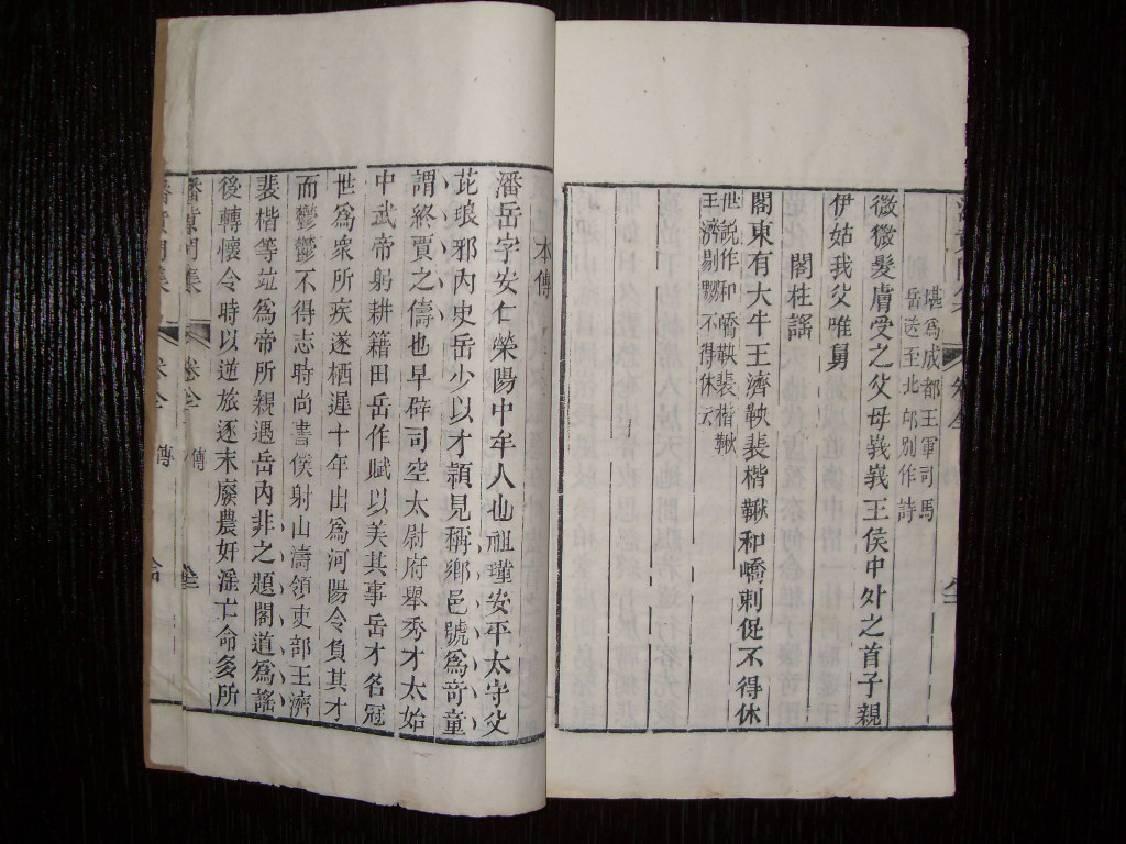 堪爲成都王軍司馬
岳送至北邙别作詩
微微髮膚受之父母峩峩王侯中外之首子親
伊姑我父唯舅
閣柱謡
閣東有大牛王濟鞅裴楷鞦和嶠刺促不得休
世說作和嶠鞅裴楷鞦
王濟剔嬲不得休云
本傳
潘岳字安仁滎陽中牟人也祖瑾安平太守父
芘琅邪内史岳少以才穎見稱鄉邑號爲奇童
謂終賈之儔也早辟司空太尉府舉秀才太始
中武帝躬耕籍田岳作賦以美其事岳才名冠
世爲衆所疾遂栖遲十年出爲河陽令負其才
而鬱鬱不得志時尚書僕射山濤領吏部王濟
裴楷等竝爲帝所親遇岳内非之題閣道爲謡
後轉懷令時以逆旅逐末廢農奸淫亡命多所
潘黄門集
卷全
傳